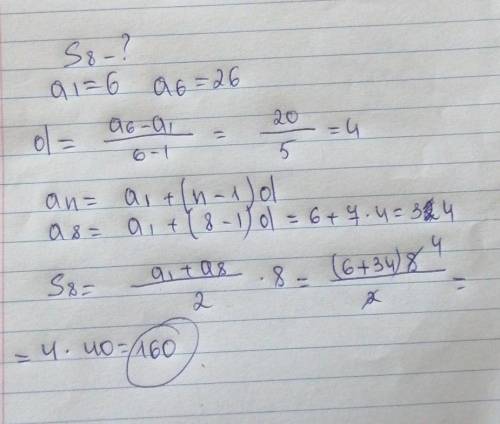 S8 - ?
a1 = 6 a6 = 26
d = (a6 - a1)/(6 - 1) = 20/5 = 4
an = a1 + (n - 1)d
a8 = a1 + (8 - 1)d = 6 + 7 · 4 = 34
S8 = (a1 + a8)/2 · 8 = (6 + 34)8/2 4 =
= 4 · 40 = 160